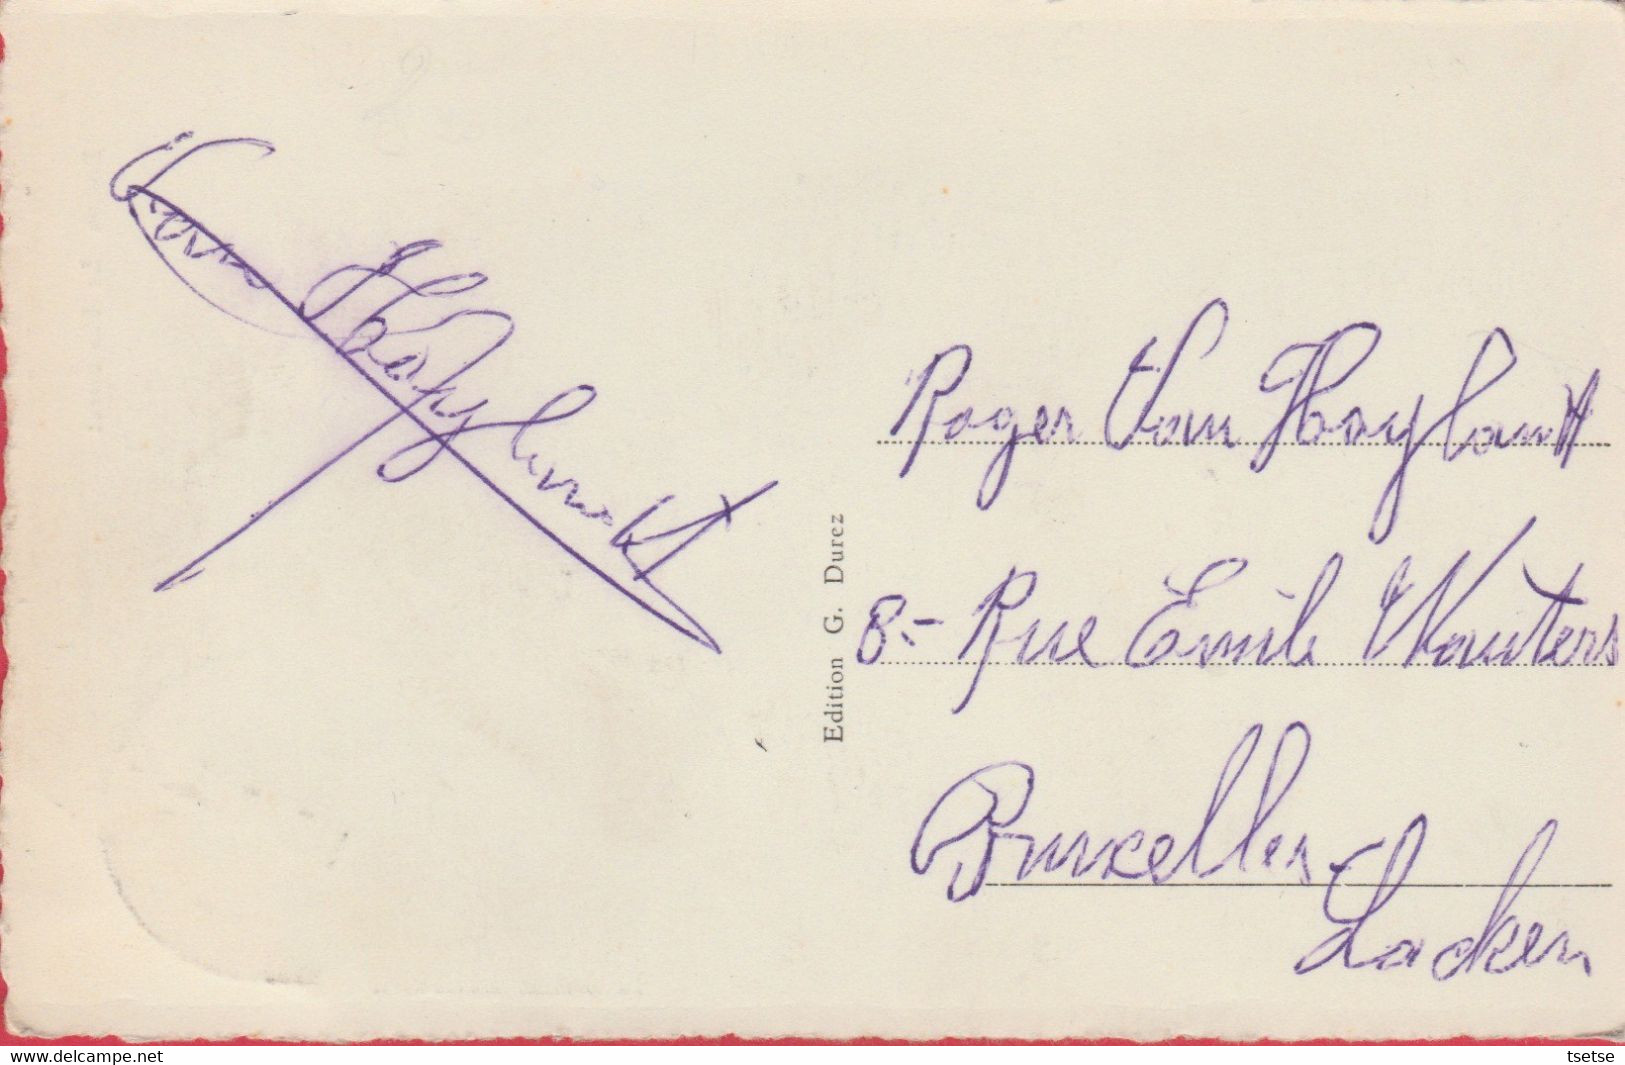 Van Hoeylandt
Edition G. Durez
Roger Van Hoeylandt
8.- Rue Emile Wauters
Bruxelles-
Laeken
www.delcampe.net
tsetse